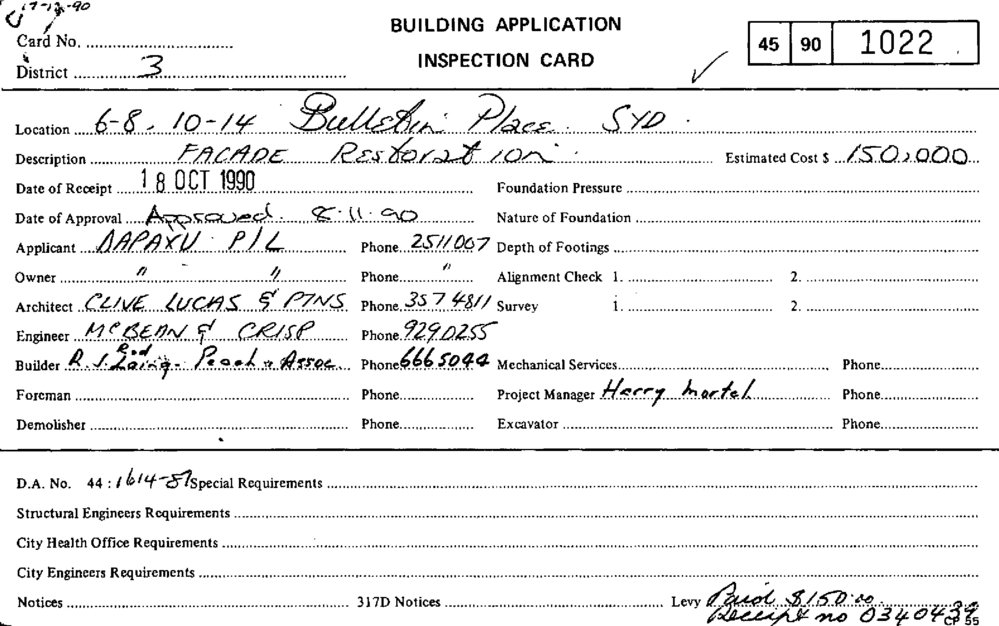 17-12-90
BUILDING APPLICATION
INSPECTION CARD
45 90 1022
Card No.
District 3
Location 6-8. 10-14 Bulletin Place. SYD.
Description FACADE Restoration. Estimated Cost $ 150,000
Date of Receipt 18 OCT 1990 Foundation Pressure
Date of Approval Approved. 8.11.90 Nature of Foundation
Applicant DAPAXU P/L Phone 2511007 Depth of Footings
Owner " " Phone " Alignment Check 1. 2.
Architect CLIVE LUCAS & PTNS Phone 357 4811 Survey 1. 2.
Engineer MCBEAN & CRISP Phone 9290255
Builder R.J. Rod Laing - Peach & Assoc. Phone 6665044 Mechanical Services Phone
Foreman Phone Project Manager Harry Martel Phone
Demolisher Phone Excavator Phone
D.A. No. 44: 1614-87 Special Requirements
Structural Engineers Requirements
City Health Office Requirements
City Engineers Requirements
Notices 317D Notices Levy Paid $150.00
Receipt no 0340439
CP 55